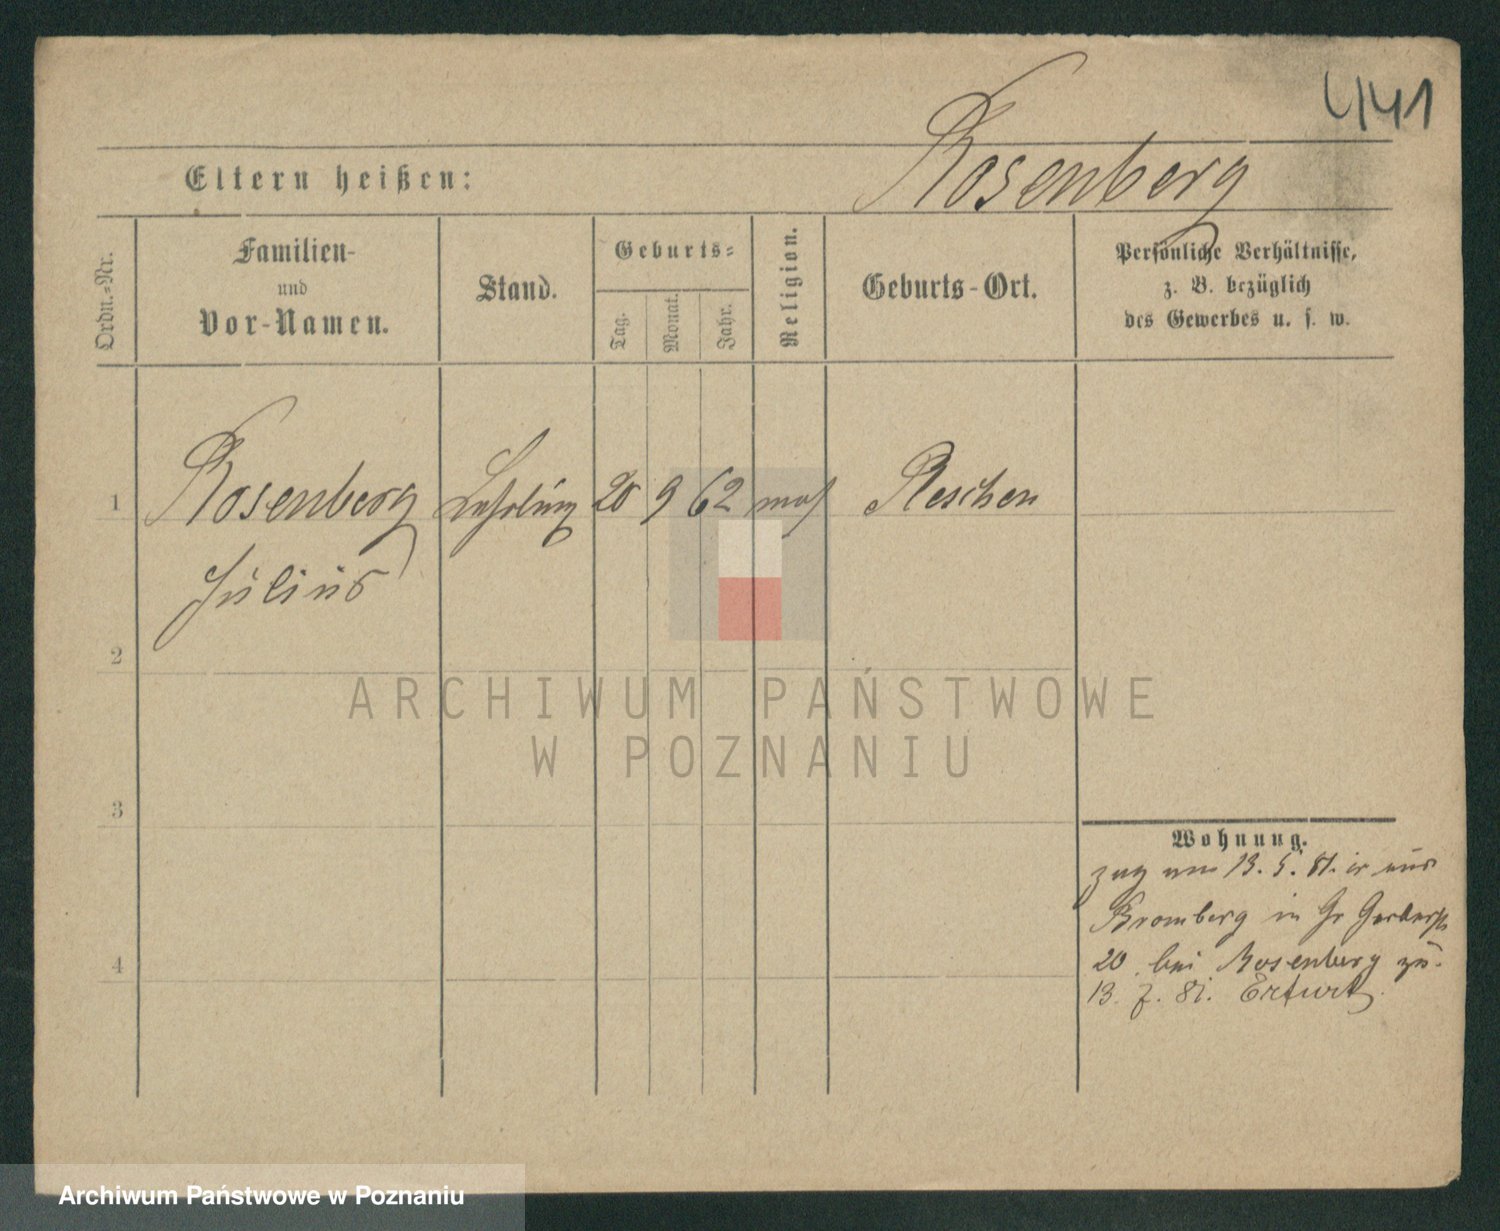 441
Rosenberg
Eltern heißen:
Ordn.-Nr.
Familien-
und
Vor-Namen.
Stand.
Geburts-
Tag.
Monat.
Jahr.
Religion.
Geburts-Ort.
Persönliche Verhältnisse,
z. B. bezüglich
des Gewerbes u. s. w.
1 Rosenberg Lehrling 20 9 62 mos
Julius
2
3
4
Wohnung.
zug am 13. 5. 81. aus
Bromberg in Gr Gerberstr
20 bei Rosenberg zu.
13. 7. 81. Erfurt.
ARCHIWUM PAŃSTWOWE
W POZNANIU
Archiwum Państwowe w Poznaniu